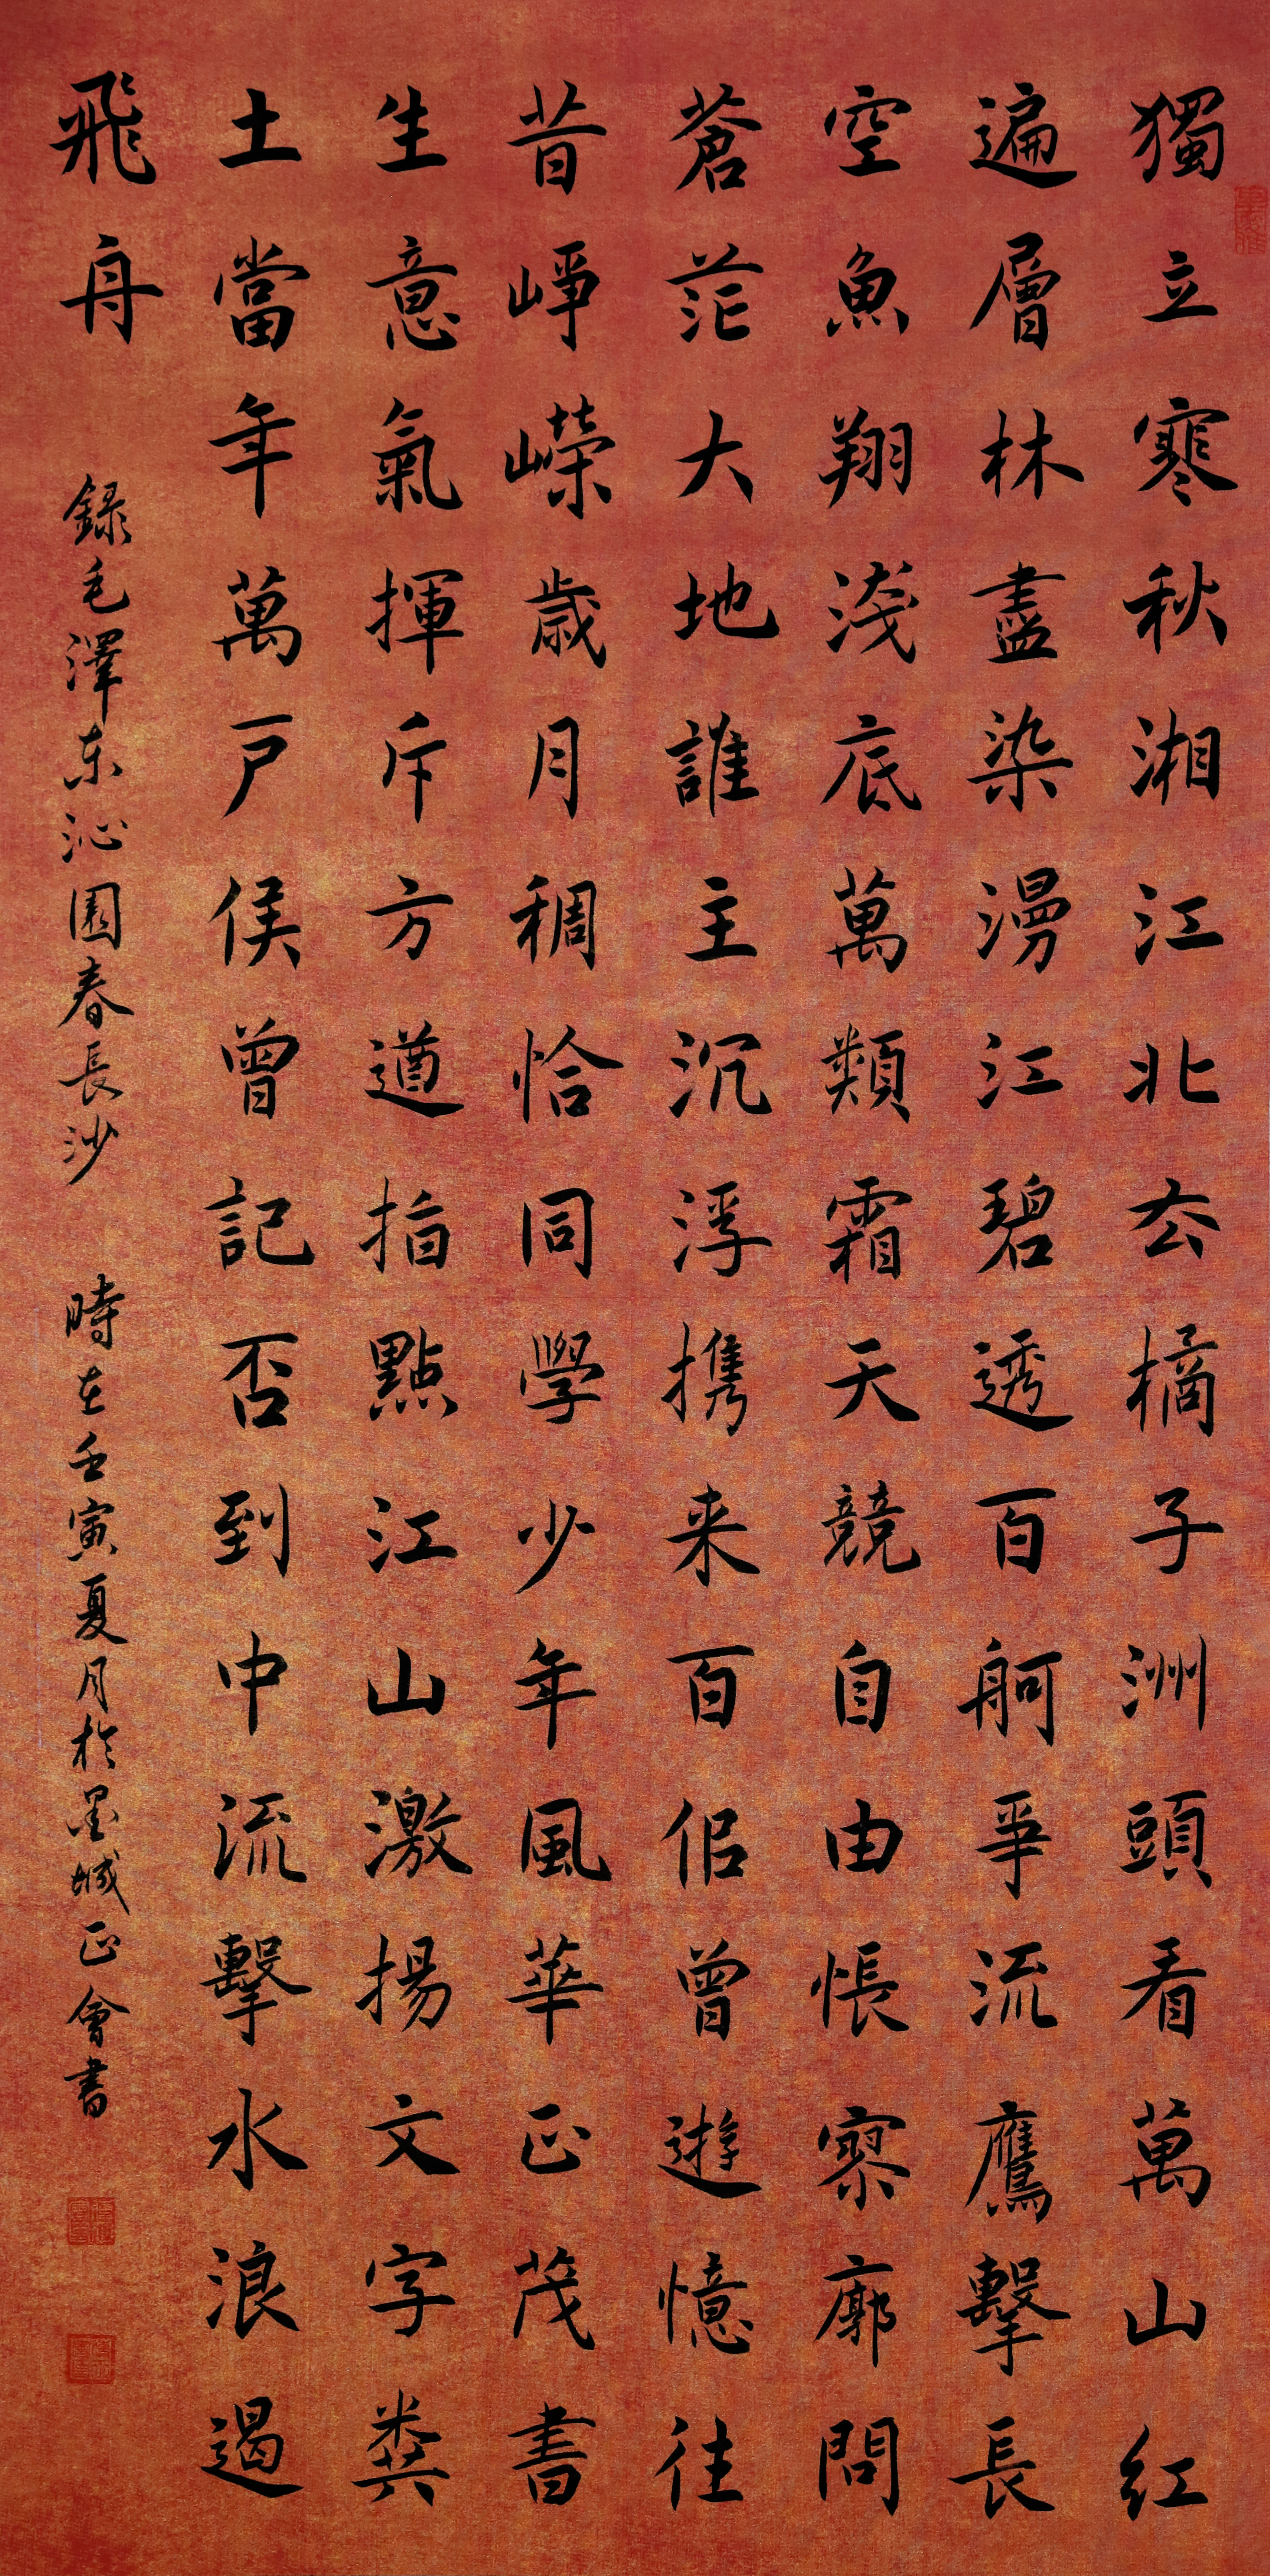 獨立寒秋湘江北去橘子洲頭看萬山红
遍層林盡染漫江碧透百舸爭流鷹擊長
空魚翔淺底萬類霜天競自由悵寥廓問
蒼茫大地誰主沉浮携来百侣曾遊憶往
昔崢嶸歲月稠恰同學少年風華正茂書
生意氣揮斥方遒指點江山激揚文字糞
土當年萬戶侯曾記否到中流擊水浪遏
飛舟
録毛澤东沁園春長沙 時在壬寅夏月於墨城正會書